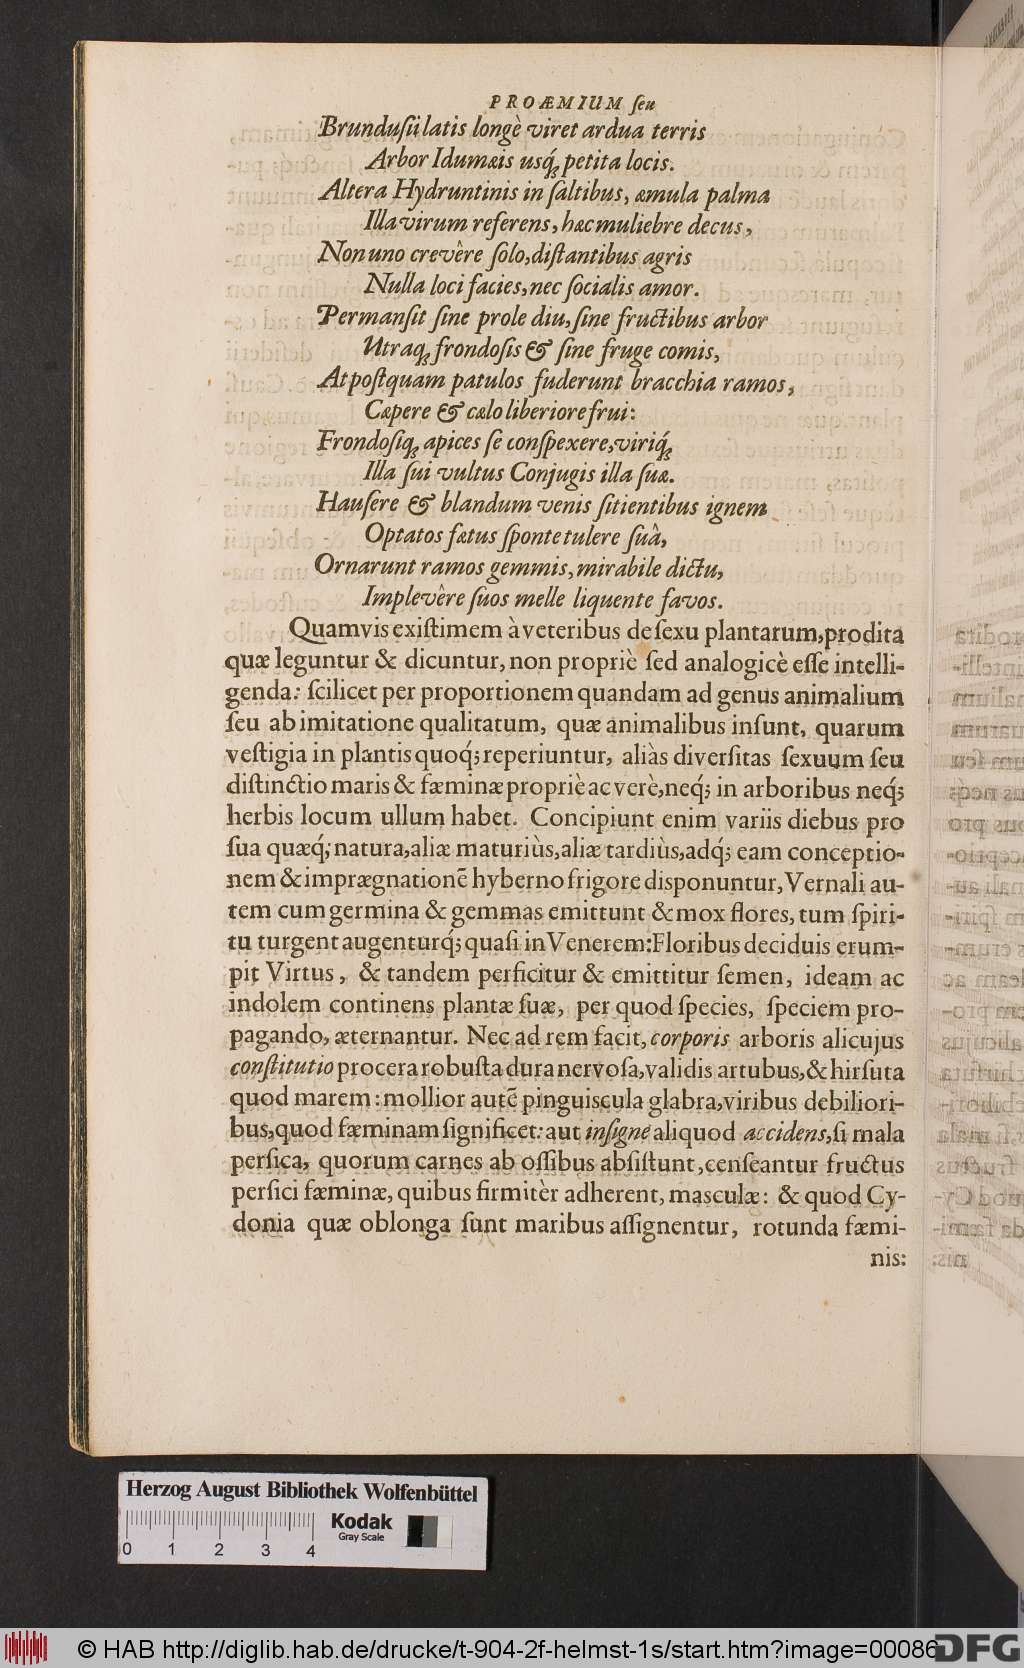 PROÆMIUM ſeu
Brunduſii latis longè viret ardua terris
Arbor Idumæis usq́; petita locis.
Altera Hydruntinis in ſaltibus, æmula palma
Illa virum referens, hæc muliebre decus,
Non uno crevêre ſolo, diſtantibus agris
Nulla loci facies, nec ſocialis amor.
Permanſit ſine prole diu, ſine fructibus arbor
Utraq; frondoſis & ſine fruge comis,
At poſtquam patulos fuderunt bracchia ramos,
Cæpere & cælo liberiore frui:
Frondoſiq; apices ſe conſpexere, viriq́;
Illa ſui vultus Conjugis illa ſuæ.
Hauſere & blandum venis ſitientibus ignem
Optatos fætus ſponte tulere ſuâ,
Ornarunt ramos gemmis, mirabile dictu,
Implevêre ſuos melle liquente favos.
Quamvis exiſtimem à veteribus de ſexu plantarum, prodita
quæ leguntur & dicuntur, non propriè ſed analogicè eſſe intelli-
genda: ſcilicet per proportionem quandam ad genus animalium
ſeu ab imitatione qualitatum, quæ animalibus inſunt, quarum
veſtigia in plantis quoq́; reperiuntur, aliàs diverſitas ſexuum ſeu
diſtinctio maris & fæminæ propriè ac verè, neq́; in arboribus neq́;
herbis locum ullum habet. Concipiunt enim variis diebus pro
ſua quæq́; natura, aliæ maturiùs, aliæ tardiùs, adq́; eam conceptio-
nem & imprægnationẽ hyberno frigore disponuntur, Vernali au-
tem cum germina & gemmas emittunt & mox flores, tum ſpiri-
tu turgent augenturq́; quaſi in Venerem: Floribus deciduis erum-
pit Virtus, & tandem perficitur & emittitur ſemen, ideam ac
indolem continens plantæ ſuæ, per quod ſpecies, ſpeciem pro-
pagando, æternantur. Nec ad rem facit, corporis arboris alicujus
conſtitutio procera robuſta dura nervoſa, validis artubus, & hirſuta
quod marem: mollior autẽ pinguiscula glabra, viribus debiliori-
bus, quod fæminam ſignificet: aut inſigne aliquod accidens, ſi mala
perſica, quorum carnes ab oſſibus abſiſtunt, cenſeantur fructus
perſici fæminæ, quibus firmitèr adherent, masculæ: & quod Cy-
donia quæ oblonga ſunt maribus aſſignentur, rotunda fæmi-
nis:
Herzog August Bibliothek Wolfenbüttel
Kodak
Gray Scale
0 1 2 3 4
© HAB http://diglib.hab.de/drucke/t-904-2f-helmst-1s/start.htm?image=00086
DFG